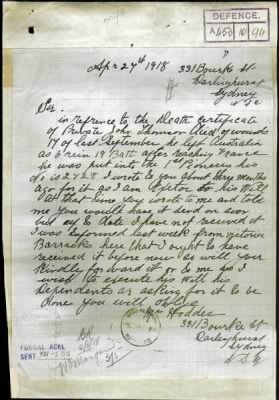 DEFENCE.
Apr 27th 1918 331 Bourke St
Darlinghurst
Sydney
Sir.
in refrence to the Death Certificate
of Private John Thomson Died of wounds
17 of last September he left Australia
as 6 rein 19 Batt after reaching France
he was put into the 1st Pioneers his
No is 2428 I wrote to you about three months
ago for it as I am Exitor to his Will
at that time you wrote to me and told
me You would have it send on over
but up to Date I have not received it
I was informed last week from Victoria
Barracks here that I ought to have
received it before now so will your
Kindly forward it on to me as I
wish to execute his Will his
Dependents ar asking for it to be
Done you will oblige
Mrs Hodder
331 Bourke St
Darlinghurst
Sydney
FORMAL ACKT.
SENT MAY